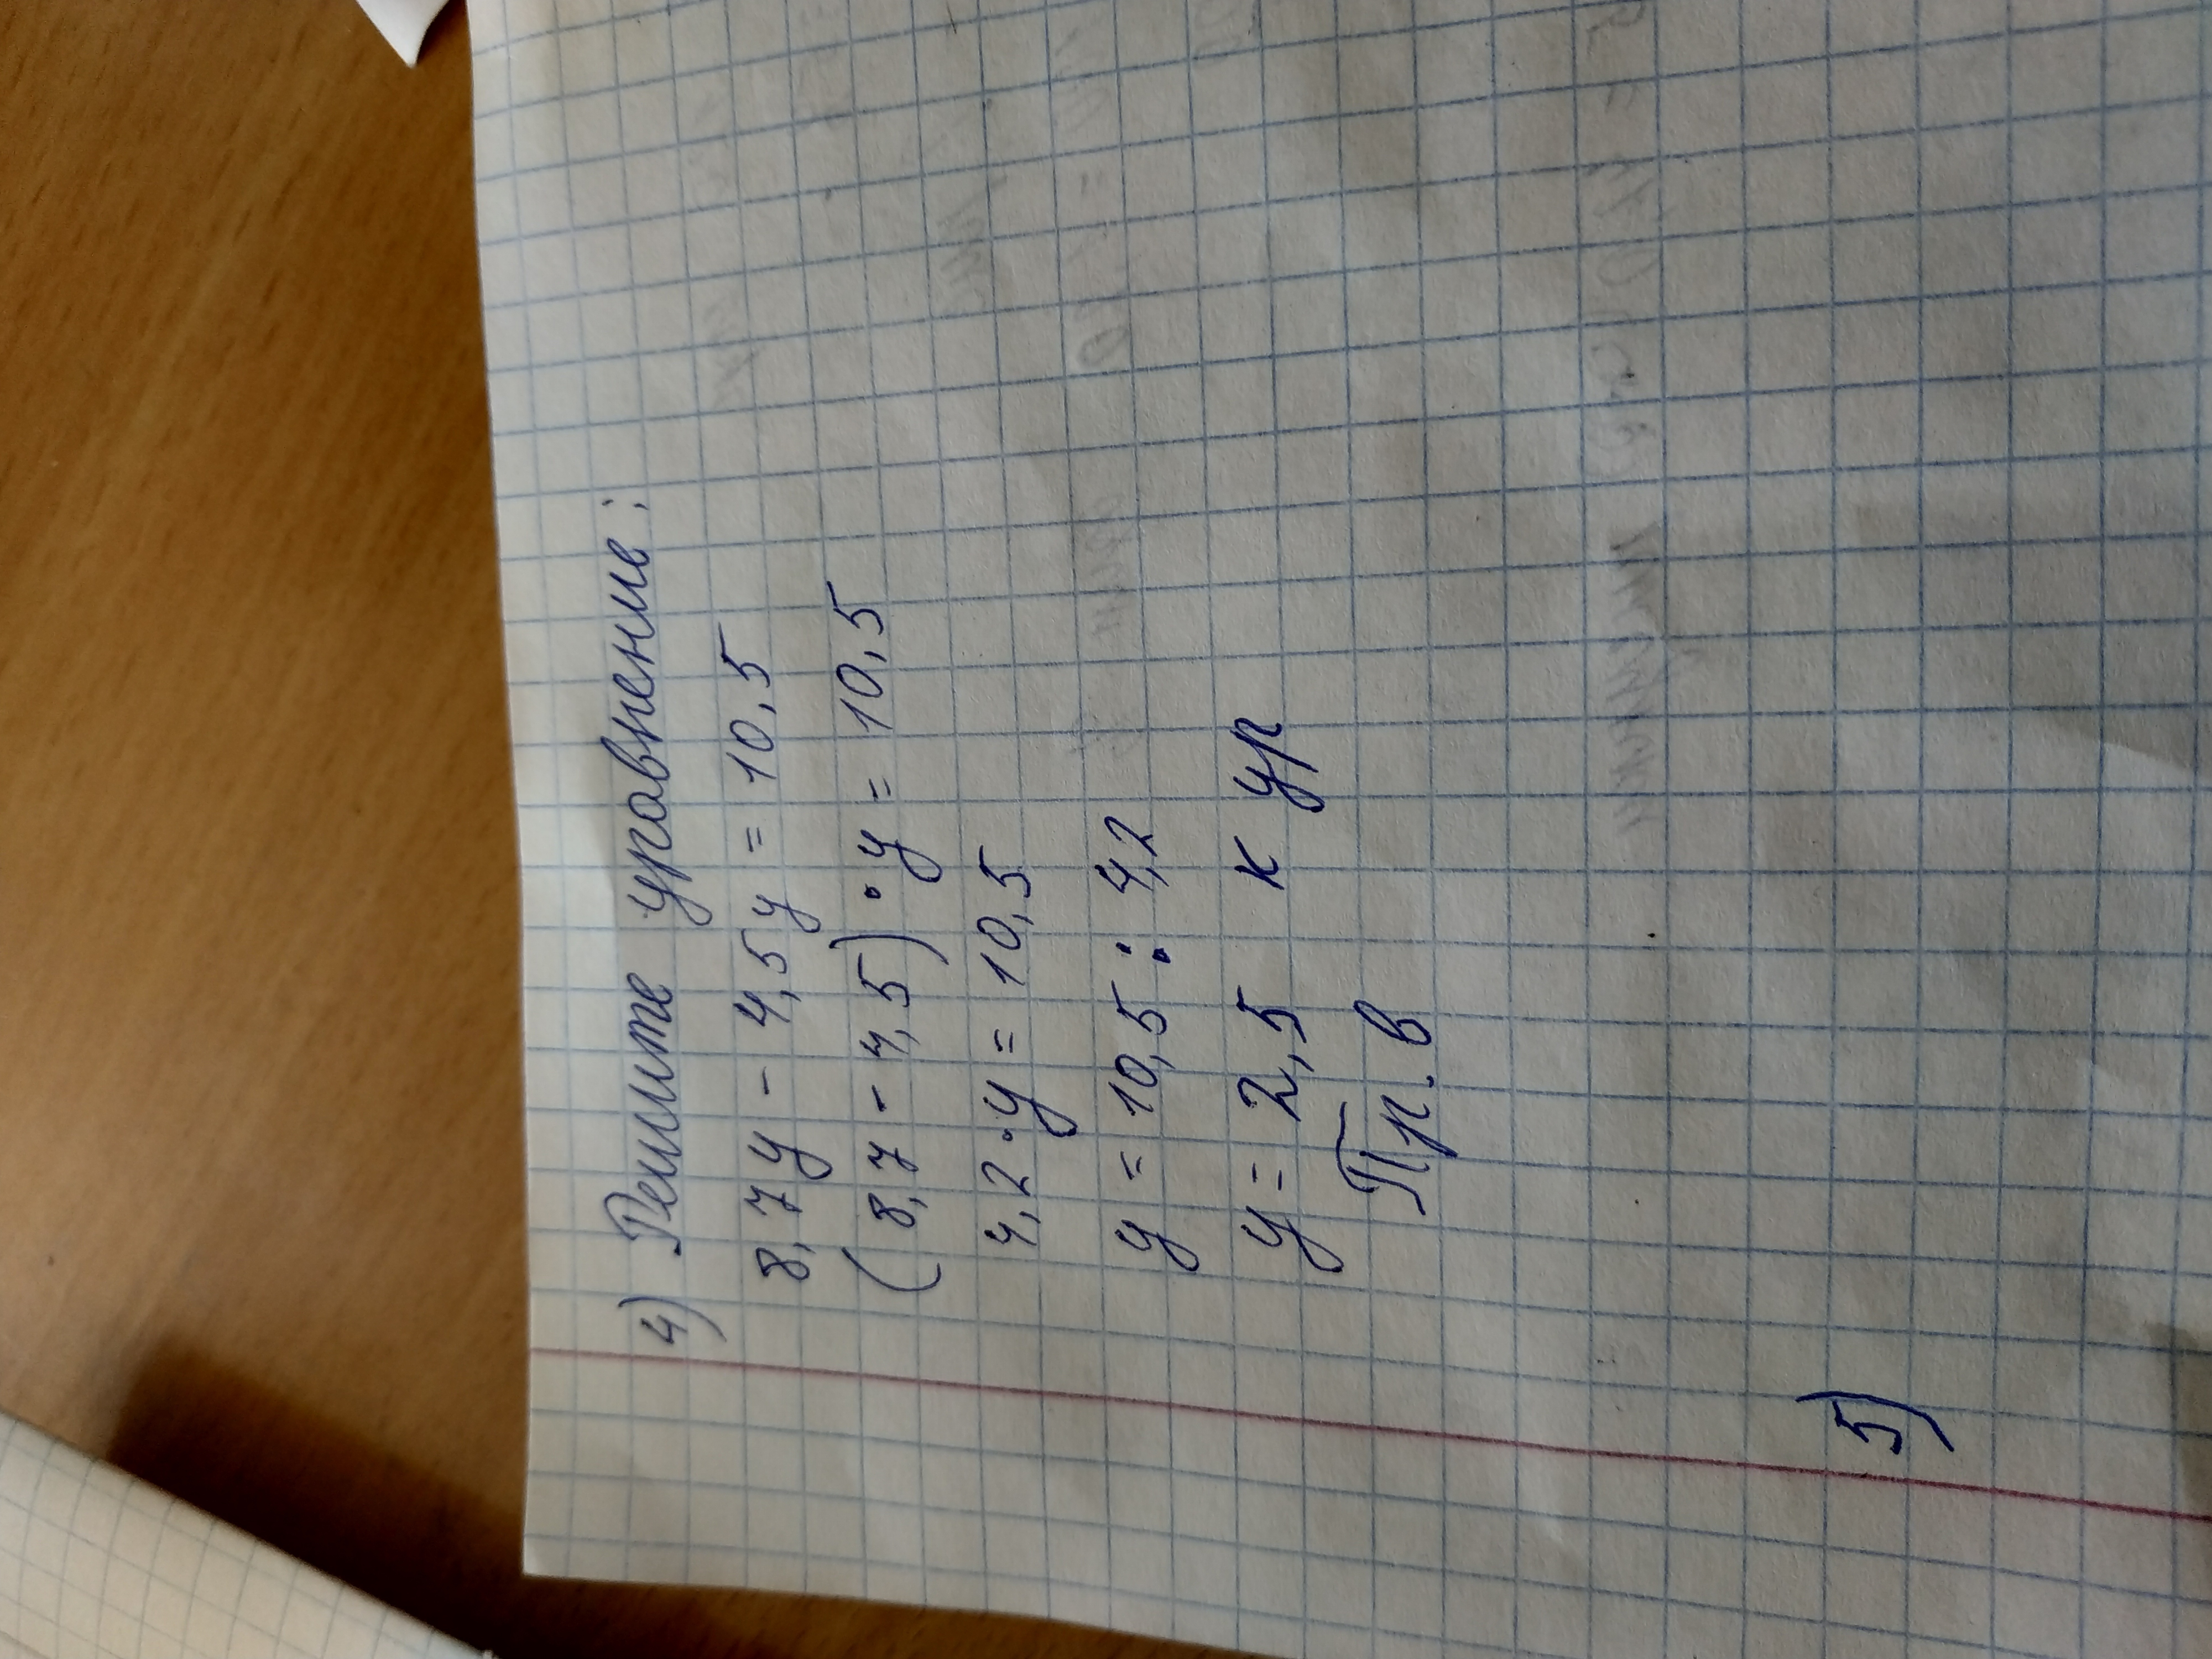 4) Решите уравнение:
8,7y - 4,5y = 10,5
(8,7 - 4,5) · y = 10,5
4,2 · y = 10,5
y = 10,5 : 4,2
y = 2,5 к ур
Пр. в
5)